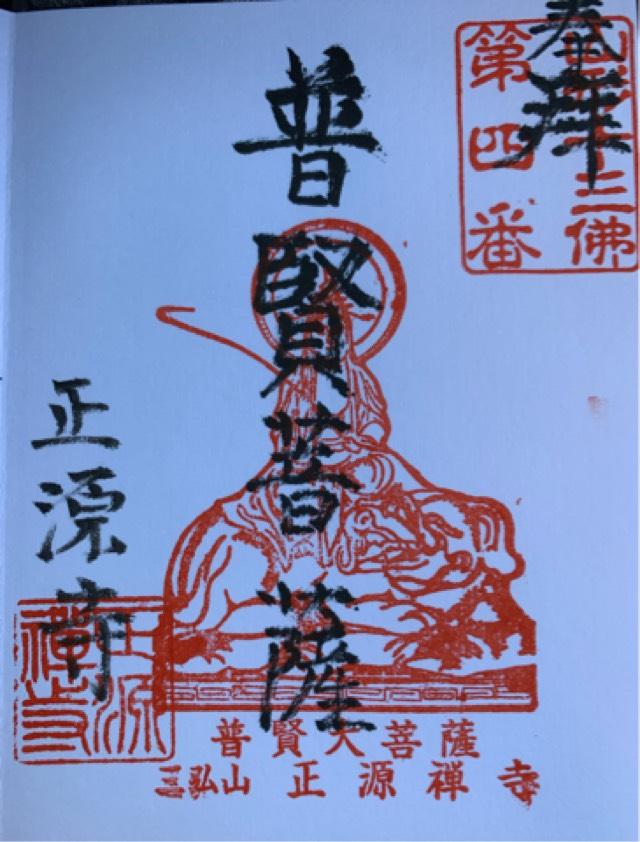 奉拝
十三佛
第四番
普賢菩薩
正源寺
普賢大菩薩
三弘山 正源禅寺